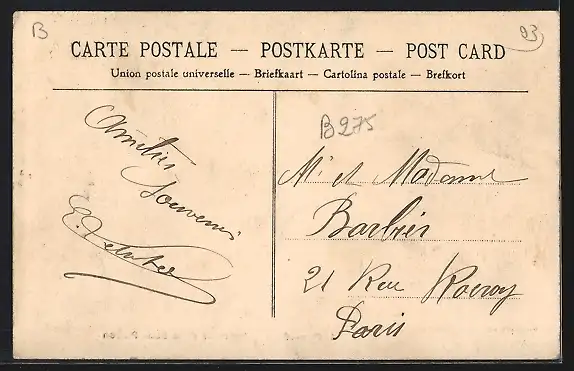 B
93
CARTE POSTALE — POSTKARTE — POST CARD
Union postale universelle — Briefkaart — Cartolina postale — Brefkort
B275
Amitiés
Souvenirs
Mr et Madame
Barbier
21 Rue Rocroy
Paris